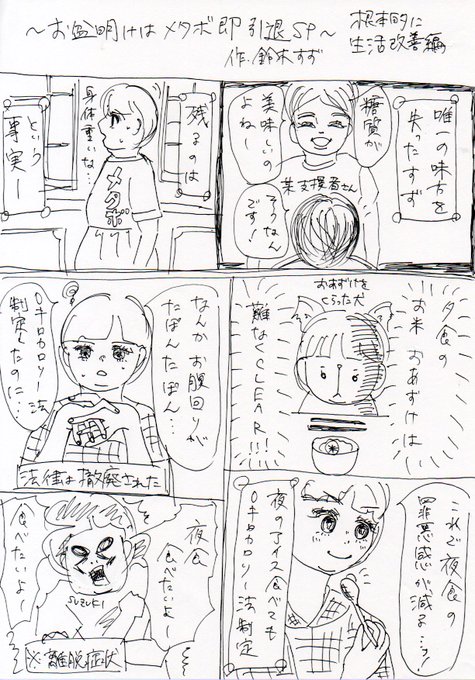 ～お盆明けはメタボ即引退SP～
根本的に
生活改善編
作．鈴木すず
唯一の味方を
失ったすず
糖質が
美味しいの
よねー
某支援者さん
そうなん
です！
残るのは
メタボ
身体重いな…
という
事実ー
夕食の
お米おあずけは
おあずけを
くらった犬
難なくCLEAR!!!
なんかお腹回りが
たぽんたぽん…
0キロカロリー法
制定したのに…
法律は撤廃された
これで夜食の
罪悪感が減る…っ！
夜のアイス食べても
0キロカロリー法制定
夜食
食べたいよー
食べたいよー
SUZUKI
※離脱症状